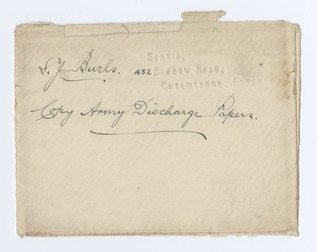 S. J. Burls. 432
SERBIA,
BADDOW ROAD,
CHELMSFORD, ESSEX
Copy Army Discharge Papers.